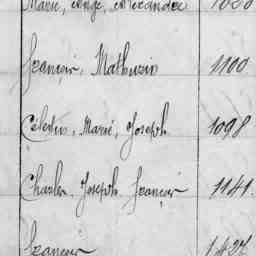 Marie, Ange, Alexandre
François, Mathurin 1100
Célestin, Marie, Joseph 1098
Charles, Joseph, François 1141
François